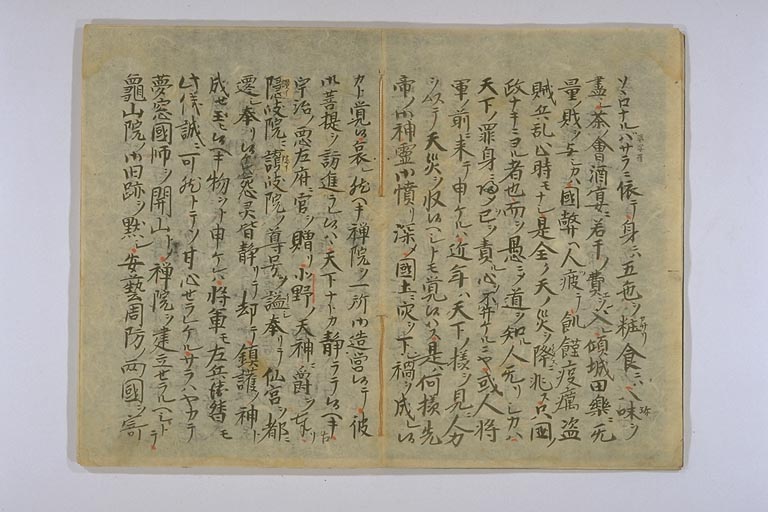 ソゞロナルバサラニ依テ身ニハ五色ヲ粧食ニハ八味ヲ
盡シ茶ノ會酒宴ニ若干ノ費ヲ入傾城田樂ニ无
量ノ財ヲ与シカハ國弊ヘ人疲テ飢饉疫癘盗
賊兵乱止時モナシ是全ク天ノ災ヲ降非ス只國ノ
政ナキニヨル者也而ヲ愚ニシテ道ヲ知人无リシカハ
天下ノ罪身ニ歸メ己ヲ責ル心ヲ不弁ケルニヤ或人將
軍ノ前ニ来テ申ケルハ近年天下ノ様ヲ見ニ人力
ヲ以テ天災ヲ收ムヘシトモ覚候ハス是ハ何様先
帝ノ御神靈御憤リ深シテ國土ニ災ヲ下シ禍ヲ成レ候
カト覚候哀レ然ヘキ禅院ヲ一所御造營候テ彼
御菩提ヲ訪進ラレ候ハヽ天下ナトカ静ラテ候ヘキ
宇治ノ悪左府ニ官ヲ贈リ小野ノ天神ニ爵ヲ奉リ
隠岐院ニ讃岐院ノ尊号ヲ謚奉リテ仙宮ヲ都ニ
遷シ奉リ候シカハ怨灵皆静リテ却テ鎮護ノ神ト
成セ玉ヒ候ヘキ物ヲト申ケレハ將軍モ左兵衛督モ
此儀誠ニ可然トテソ甘心セラレケルサラハヤカテ
夢窓國師ヲ開山トシテ禅院ヲ建立セラルヘシトテ
龜山院ノ御旧跡ヲ點シ安藝周防両國ヲ寄